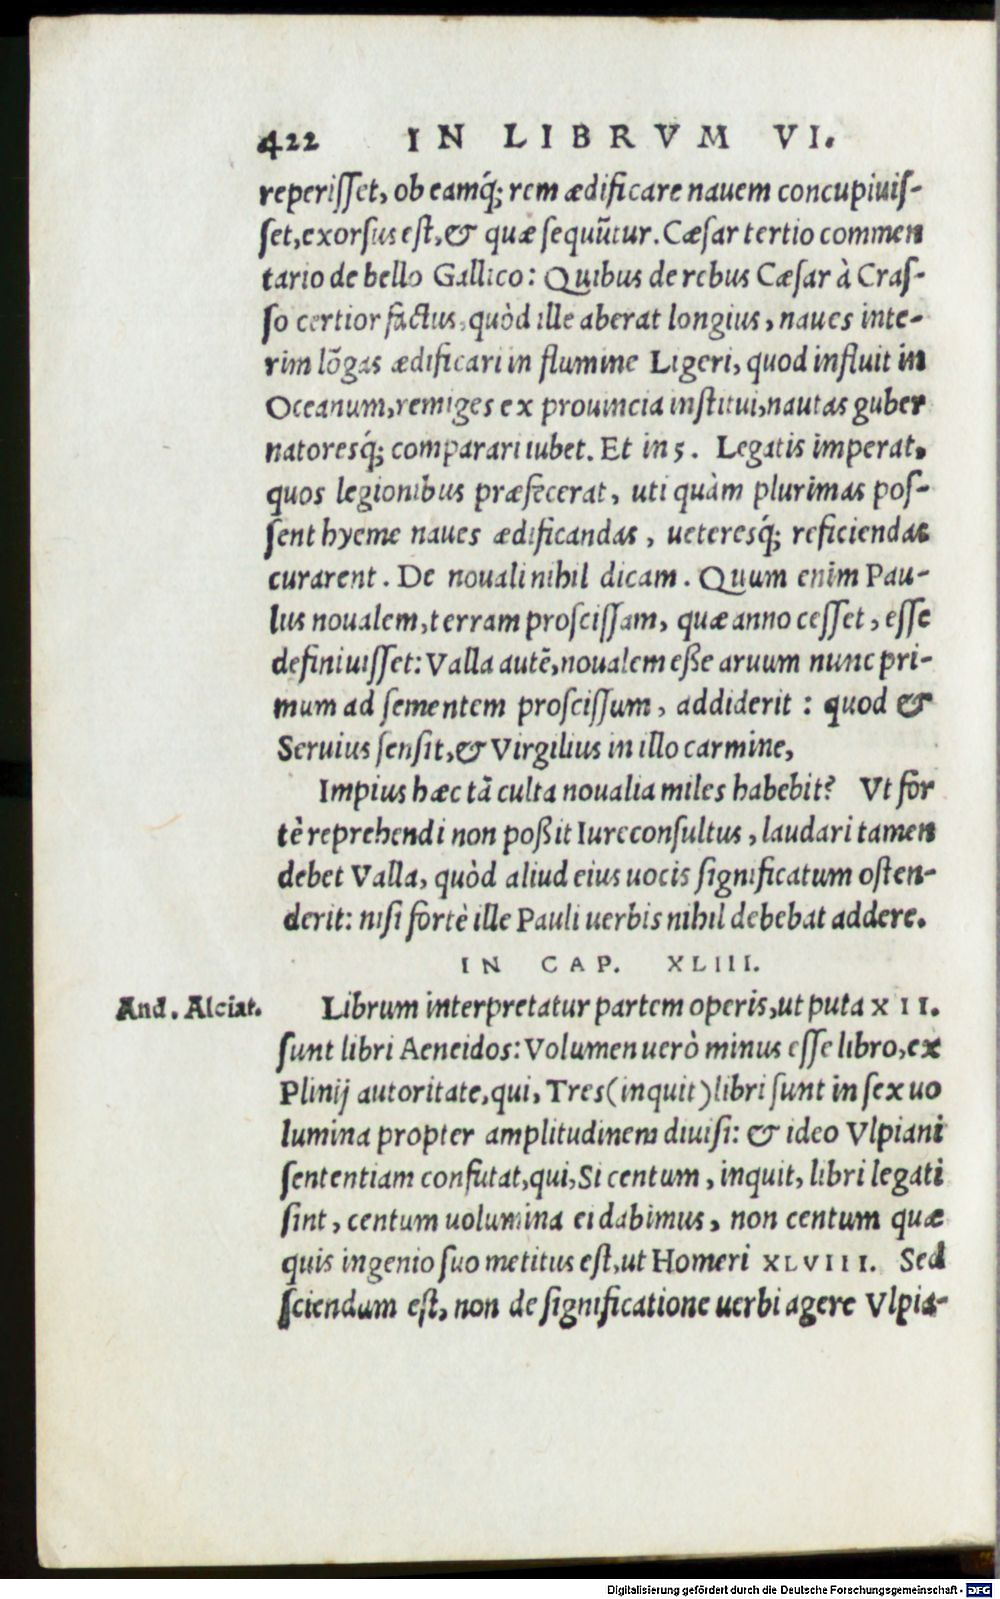 422 IN LIBRVM VI.
reperiſſet, ob eamq́; rem ædificare nauem concupiuiſ-
ſet, exorſus eſt, & quæ ſequũtur. Cæſar tertio commen
tario de bello Gallico: Quibus de rebus Cæſar à Craſ-
ſo certior factus, quòd ille aberat longius, naues inte-
rim lõgas ædificari in flumine Ligeri, quod influit in
Oceanum, remiges ex prouincia inſtitui, nautas guber
natoresq́; comparari iubet. Et in 5. Legatis imperat,
quos legionibus præfecerat, uti quàm plurimas poſ-
ſent hyeme naues ædificandas, ueteresq́; reficiendas
curarent. De nouali nihil dicam. Quum enim Pau-
lus noualem, terram proſciſſam, quæ anno ceſſet, eſſe
definiuiſſet: Valla autẽ, noualem eße aruum nunc pri-
mum ad ſementem proſciſſum, addiderit: quod &
Seruius ſenſit, & Virgilius in illo carmine,
Impius hæc tã culta noualia miles habebit? Vt for
tè reprehendi non poßit Iureconſultus, laudari tamen
debet Valla, quòd aliud eius uocis ſignificatum oſten-
derit: niſi fortè ille Pauli uerbis nihil debebat addere.
IN CAP. XLIII.
And. Alciat. Librum interpretatur partem operis, ut puta XII.
ſunt libri Aeneidos: Volumen uerò minus eſſe libro, ex
Plinij autoritate, qui, Tres (inquit) libri ſunt in ſex uo
lumina propter amplitudinem diuiſi: & ideo Vlpiani
ſententiam confutat, qui, Si centum, inquit, libri legati
ſint, centum uolumina ei dabimus, non centum quæ
quis ingenio ſuo metitus eſt, ut Homeri XLVIII. Sed
ſciendum eſt, non de ſignificatione uerbi agere Vlpia-
Digitalisierung gefördert durch die Deutsche Forschungsgemeinschaft - DFG